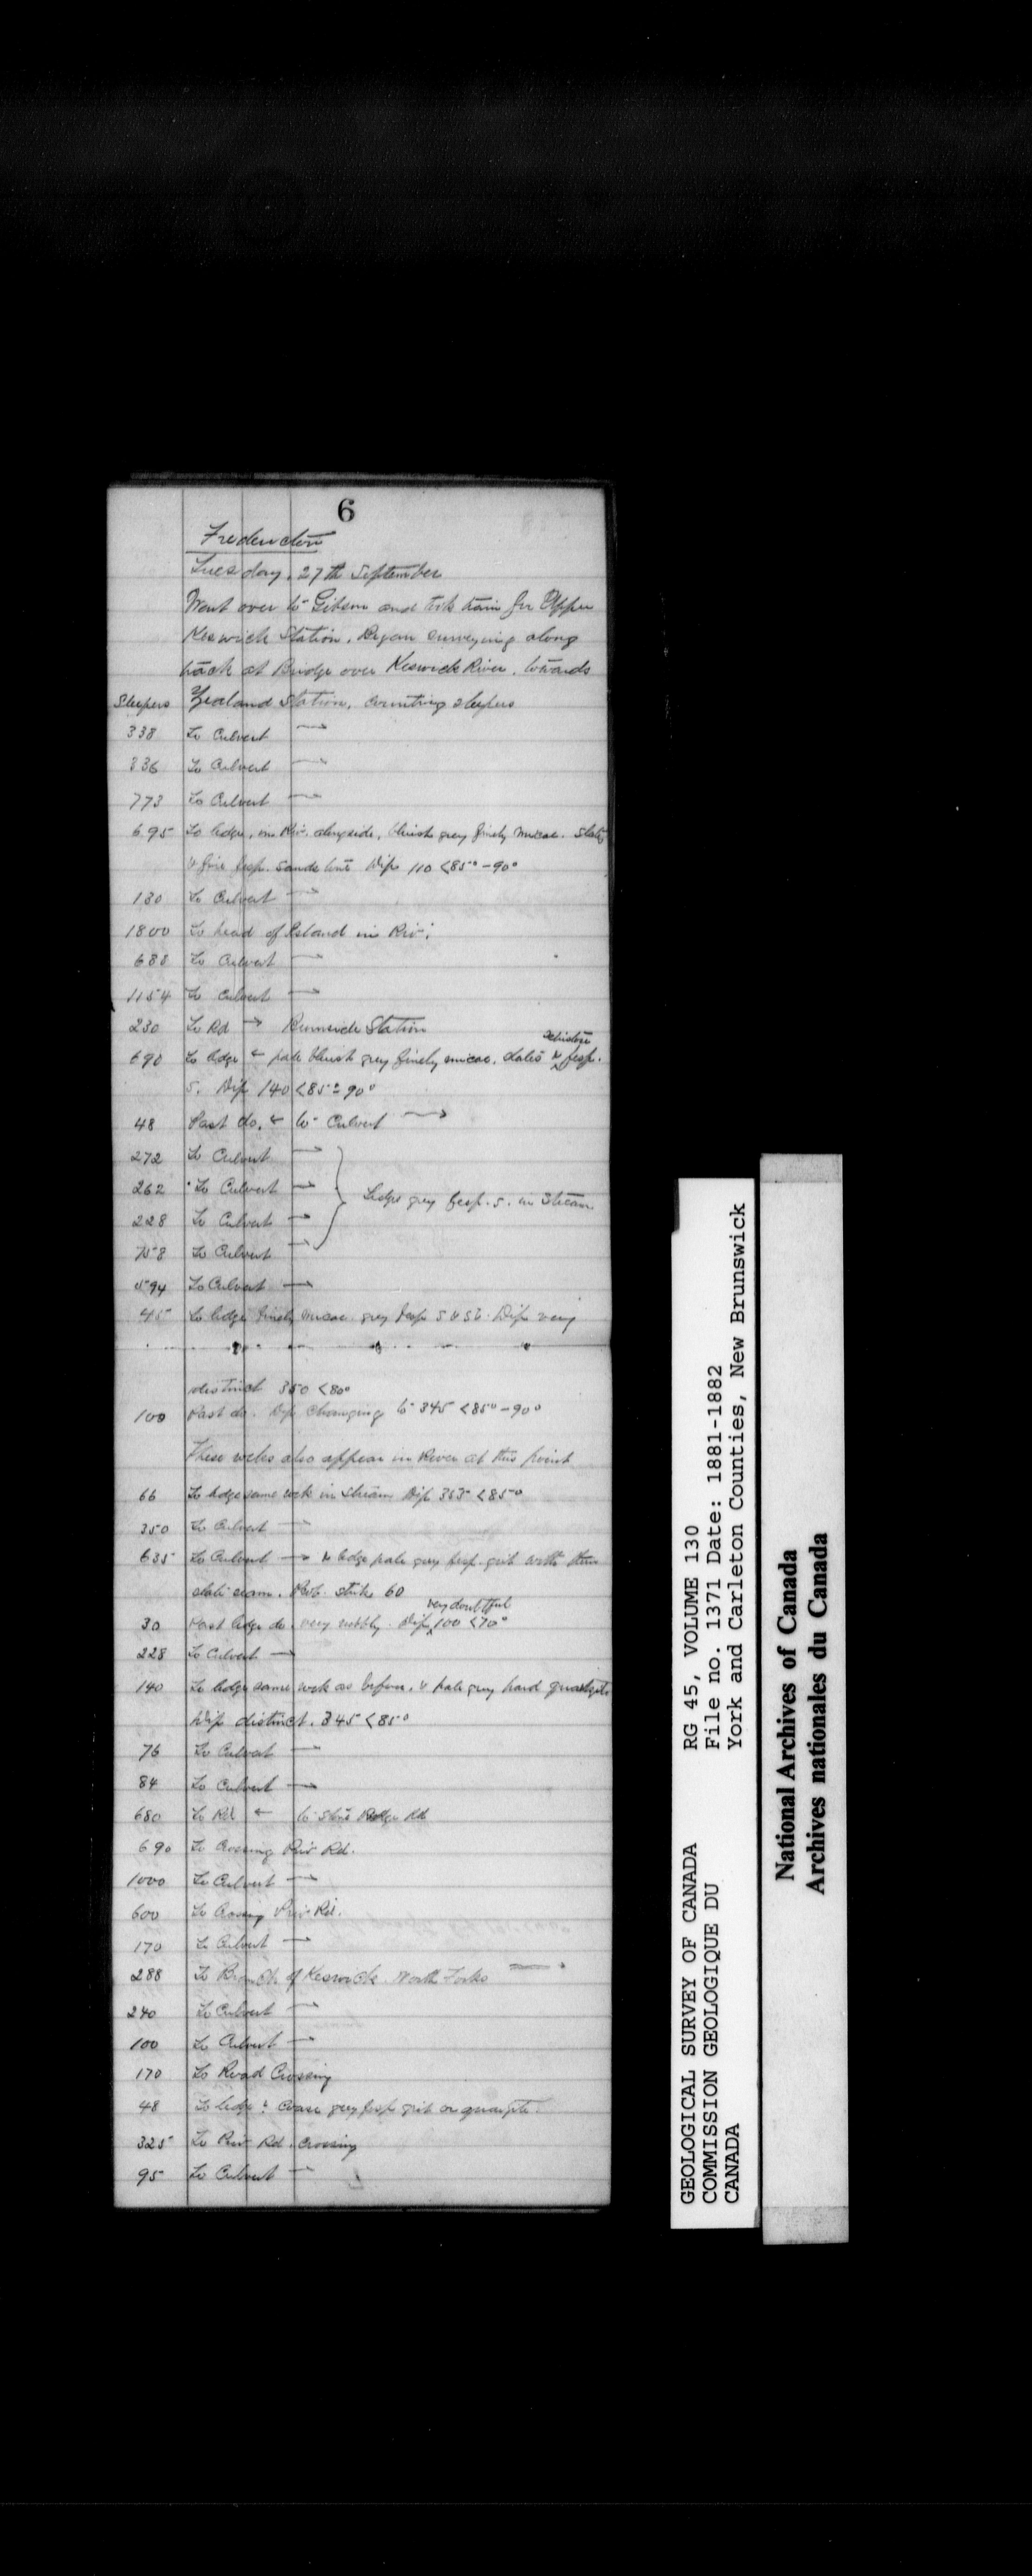 6
Fredericton
Tuesday, 27th September
Went over to Gibson and took train for Upper
Keswick Station. Began surveying along
track at Bridge over Keswick River, towards
Sleepers Zealand Station, counting sleepers
338 To Culvert →
336 To Culvert →
773 To Culvert →
695 To ledge, in Riv. alongside, bluish grey finely micac. slates
& fine fesp. sandstone Dip 110 <85°-90°
130 To Culvert →
1800 To head of Island in Riv.
688 To Culvert →
1154 To Culvert →
230 To Rd → Station
schistose
690 To ledge ← pale bluish grey finely micac. slates & fesp.
S. Dip 140 <85°-90°
48 Past do. ← to Culvert →
272 To Culvert →
262 To Culvert → Ledge grey fesp. S. in Stream
228 To Culvert →
758 To Culvert →
594 To Culvert →
45 To ledge finely micac. grey fesp S & Sl. Dip very
distinct 350 <80°
100 Past do. Dip changing to 345 <85°-90°
These rocks also appear in River at this point
66 To ledge same rock in stream Dip 353 <85°
350 To Culvert →
635 To Culvert → & ledge pale grey fesp. grit with thin
slate seam. Prob. strike 60
very doubtful
30 Past ledge do. very nubbly. Dip 100 <70°
228 To Culvert →
140 To ledge same rock as before, & pale grey hard quartzite
Dip distinct. 345 <85°
76 To Culvert →
84 To Culvert →
680 To Rd ← to Stone Ridge Rd
690 To Crossing Riv Rd.
1000 To Culvert →
600 To Crossing Riv Rd.
170 To Culvert →
288 To Branch of Keswick. North Forks →
240 To Culvert →
100 To Culvert →
170 To Road Crossing
48 To ledge coarse grey fesp grit or quartzite.
325 To Riv Rd. Crossing
95 To Culvert →
GEOLOGICAL SURVEY OF CANADA
COMMISSION GEOLOGIQUE DU
CANADA
RG 45, VOLUME 130
File no. 1371 Date: 1881-1882
York and Carleton Counties, New Brunswick
National Archives of Canada
Archives nationales du Canada